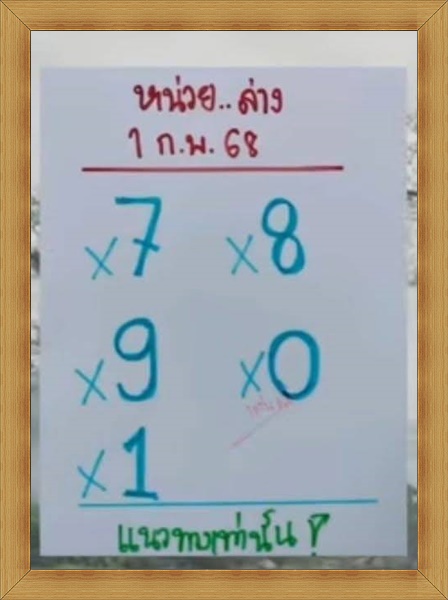 หน่วย..ล่าง
1 ก.พ. 68
x7 x8
x9 x0
x1
แนวทางเท่านั้น